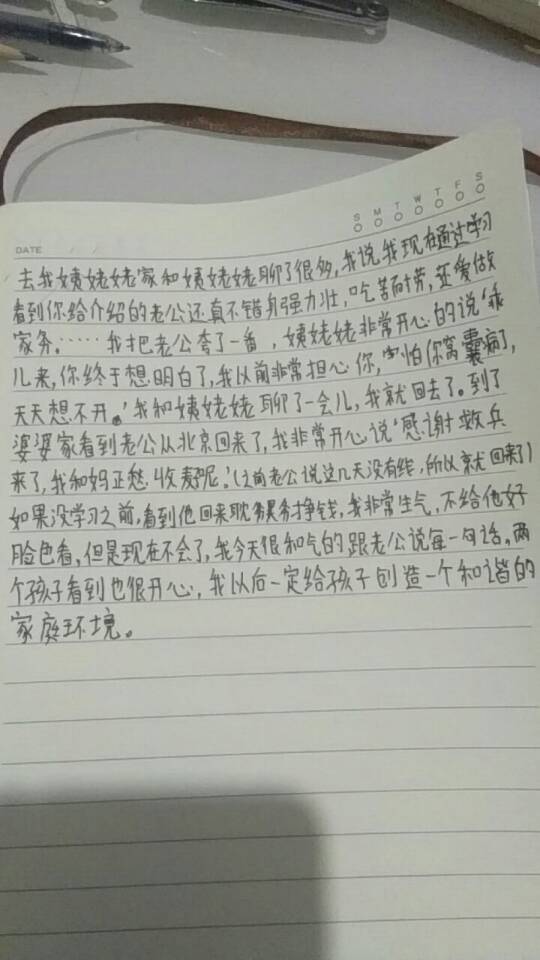 S M T W T F S
DATE
去我姨姥姥家和姨姥姥聊了很多,我说我现在通过学习
看到你给介绍的老公还真不错身强力壮,吃苦耐劳,还爱做
家务。……我把老公夸了一番,姨姥姥非常开心的说‘乖
儿来,你终于想明白了,我以前非常担心你,害怕(你窝囊病),
天天想不开。’我和姨姥姥聊了一会儿,我就回去了。到了
婆婆家看到老公从北京回来了,我非常开心说‘感谢救兵
来了,我和妈正愁收麦呢。’(之前老公说这几天没有活,所以就回来了)
如果没学习之前,看到他回来耽务挣钱,我非常生气,不给他好
脸色看,但是现在不会了,我今天很和气的跟老公说每一句话,两
个孩子看到也很开心,我以后一定给孩子创造一个和谐的
家庭环境。